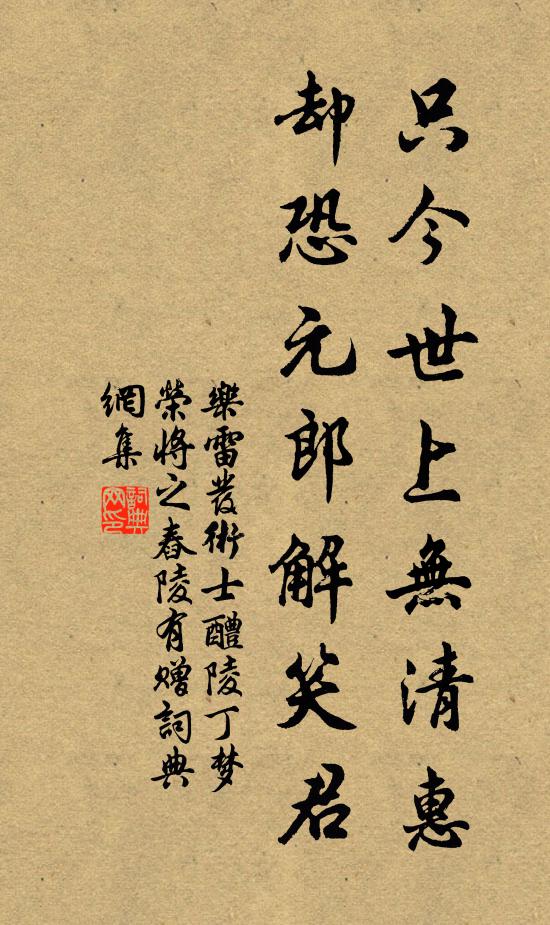 只今世上無清惠
却恐元郎解笑君
樂雷發術士醴陵丁梦
榮將之舂陵有赠詞典
網集
詞典
网印